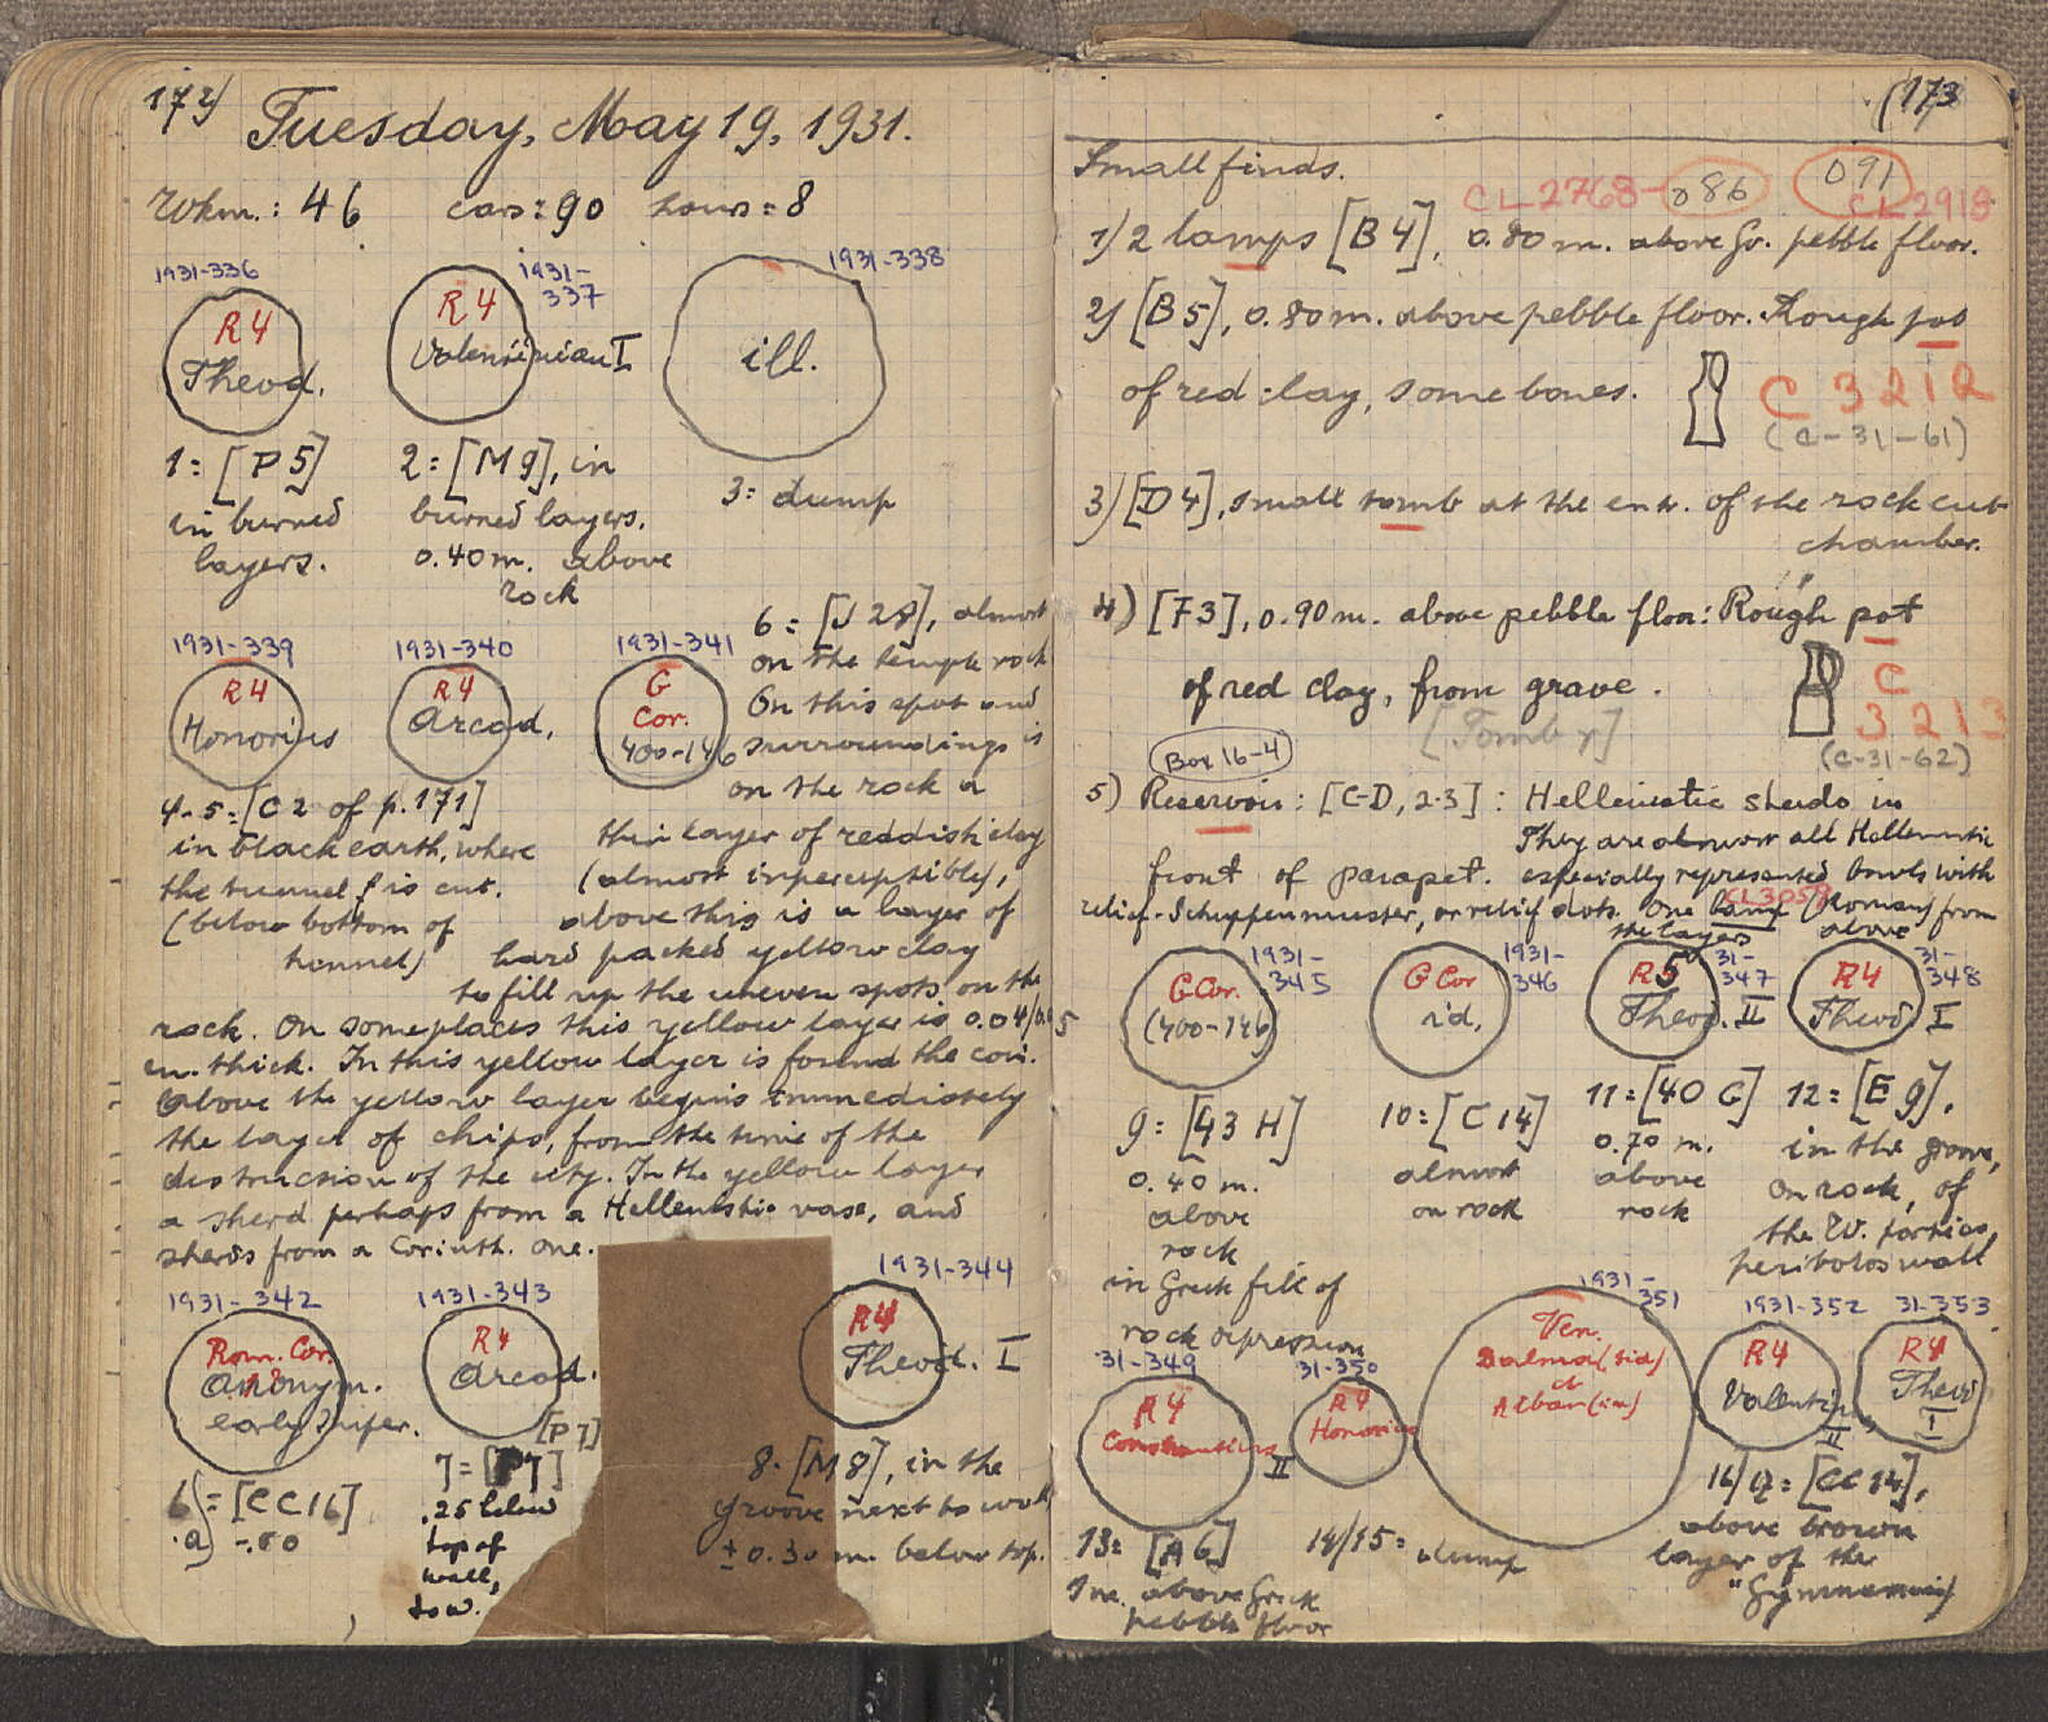 172)
Tuesday, May 19, 1931.
Wkm.: 46 cars=90 hours=8
1931-336
R4
Theod.
1931-
337
R4
Valentinian I
1931-338
ill.
1= [P 5]
in burned
layers.
2= [M 9], in
burned layers.
0.40 m. above
rock
3= dump
1931-339
R4
Honorius
1931-340
R4
Arcad.
1931-341
G
Cor.
400-146
6= [J 28], almost
on the temple rock
On this spot and
surroundings is
on the rock a
4-5=[C 2 of p.171]
in black earth, where
the tunnel f is cut.
(below bottom of
tunnel)
thin layer of reddish clay
(almost inperceptible),
above this is a layer of
hard packed yellow clay
to fill up the uneven spots on the
rock. On some places this yellow layer is 0.04/0.05
m. thick. In this yellow layer is found the coin.
Above the yellow layer begins immediately
the layer of chips, from the time of the
destruction of the city. In the yellow layer
a sherd perhaps from a Hellenistic vase, and
sherds from a Corinth. one.
1931-342
Rom. Cor.
Anonym.
early Imper.
1931-343
R4
Arcad.
1931-344
R4
Theod. I
6)= [CC16]
a) -.50
[P 7]
7= [P7]
.25 below
top of
wall,
to w.
8= [M 8], in the
groove next to wall
± 0.30 m. below top.
(173
Small finds.
CL 2768-086 091
CL 2918
1) 2 lamps [B 4], 0.80 m. above Gr. pebble floor.
2) [B 5], 0.80 m. above pebble floor. Rough pot
of red clay, some bones.
C 3212
(C-31-61)
3) [D 4], small tomb at the entr. of the rock cut
chamber.
4) [F 3], 0.90 m. above pebble floor: Rough pot
of red clay, from grave.
[Tomb γ]
C
3213
(C-31-62)
Box 16-4
5) Reservoir: [C-D, 2-3] : Hellenistic sherds in
front of parapet. They are almost all Hellenistic
especially represented bowls with
CL3058
relief-Schuppenmuster, or relief dots. One lamp (Roman) from
the layers above
1931-
345
G Cor.
(400-146)
1931-
346
G Cor
id.
31-
347
R5
Theod. II
31-
348
R4
Theod I
9= [43 H]
0.40 m.
above
rock
in Greek fill of
rock depression
10= [C 14]
almost
on rock
11= [40 G]
0.70 m.
above
rock
12= [E 9],
in the groove,
on rock, of
the W. portico,
peribolos wall
31-349
R4
Constantius
II
31-350
R4
Honorius
1931-
351
Ven.
Dalma(tia)
et
Alban(ia)
1931-352
R4
Valentin.
II
31-353
R4
Theod
I
13= [A 6]
1 m. above Greek
pebble floor
14/15= dump
16/17= [CC 14],
above brown
layer of the
"Gymnasium"